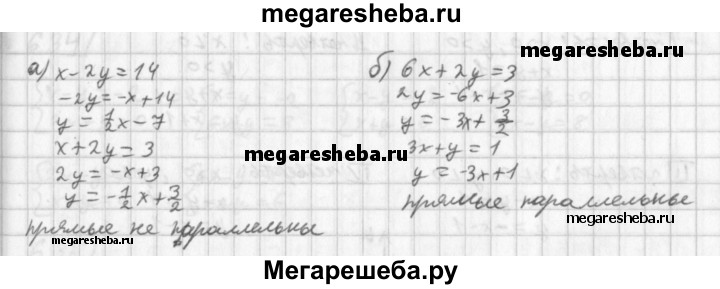 megaresheba.ru
а) x - 2y = 14
-2y = -x + 14
y = 1/2 x - 7
x + 2y = 3
2y = -x + 3
y = -1/2 x + 3/2
прямые не параллельны
megaresheba.ru
б) 6x + 2y = 3
2y = -6x + 3
y = -3x + 3/2
3x + y = 1
y = -3x + 1
прямые параллельные
megaresheba.ru
megaresheba.ru
Мегарешеба.ру